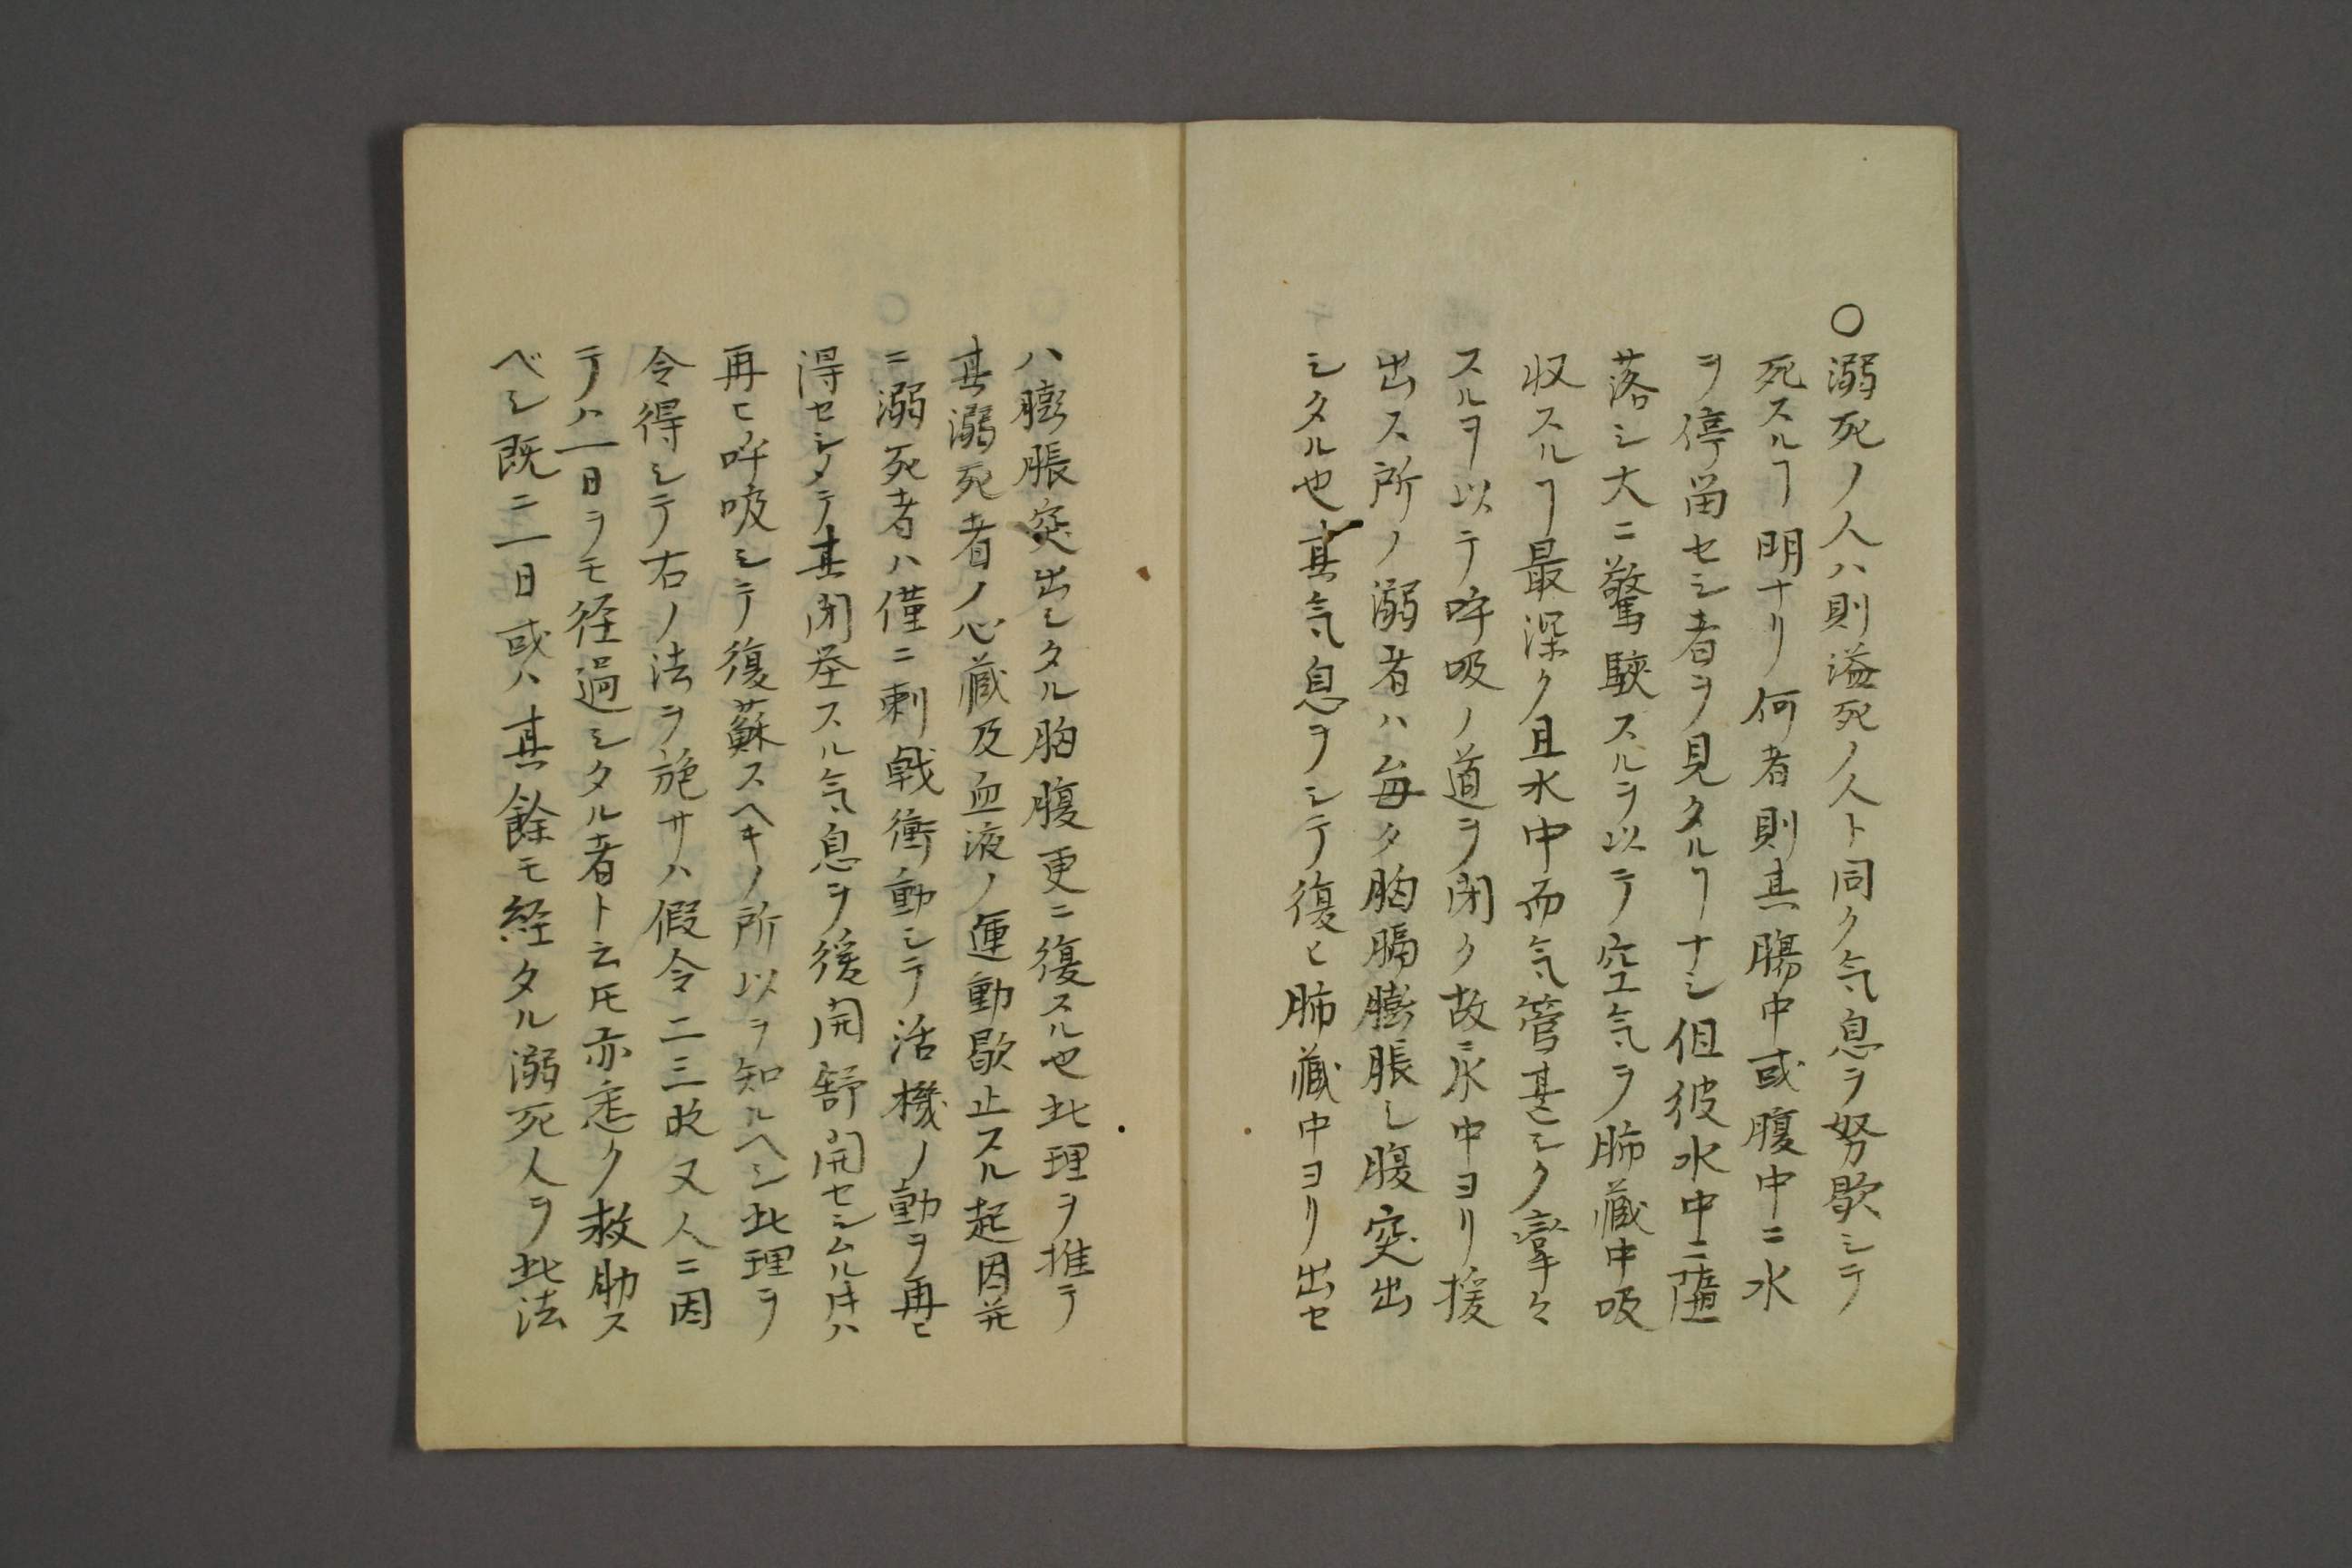 ○溺死ノ人ハ則溢死ノ人ト同ク气息ヲ努歇シテ
死スルヿ明ナリ何者則其腸中或腹中ニ水
ヲ停畄セシ者ヲ見タルヿナシ但彼水中ニ墮
落シ大ニ驚駭スルヲ以テ空气ヲ肺蔵中吸
収スルヿ最深ク且水中而气管甚シク攣々
スルヲ以テ呼吸ノ道ヲ閉ク故ニ水中ヨリ援
出ス所ノ溺者ハ毎タ胸膈膨脹シ腹突出
シタル也其气息ヲシテ復ヒ肺蔵中ヨリ出セ
ハ膨脹突出シタル胸腹更ニ復スル也此理ヲ推テ
其溺死者ノ心蔵及血液ノ運動歇止スル起因并
ニ溺死者ハ僅ニ刺戟衝動シテ活機ノ動ヲ再ヒ
得セシメテ其閉塞スル气息ヲ緩開舒開セシムル圷ハ
再ヒ呼吸シテ復蘇スヘキノ所以ヲ知ルヘシ此理ヲ
令得シテ右ノ法ヲ施サハ假令二三故又人ニ因
テハ一日ヲモ径過シタル者ト云𪜈亦悉ク救助ス
ベシ既ニ一日或ハ其餘モ経タル溺死人ヲ此法